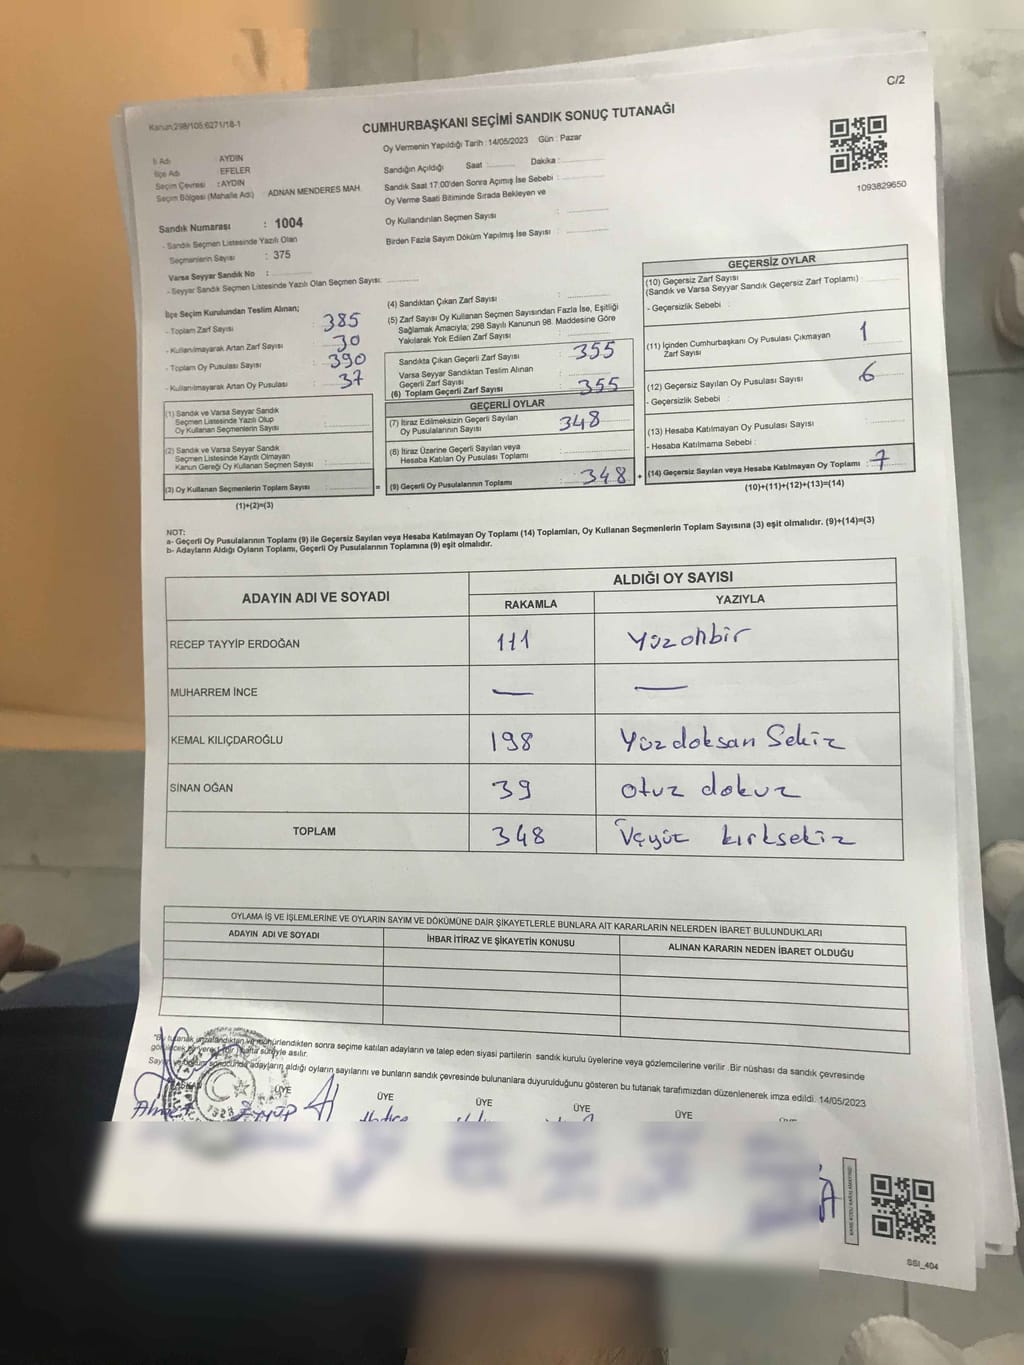 C/2
Kanun:298/105;6271/18-1
CUMHURBAŞKANI SEÇİMİ SANDIK SONUÇ TUTANAĞI
İl Adı : AYDIN
İlçe Adı : EFELER
Seçim Çevresi : AYDIN
Seçim Bölgesi (Mahalle Adı) : ADNAN MENDERES MAH.
Oy Vermenin Yapıldığı Tarih : 14/05/2023 Gün : Pazar
Sandığın Açıldığı Saat : Dakika :
Sandık Saat 17.00'den Sonra Açımış İse Sebebi :
Oy Verme Saati Bitiminde Sırada Bekleyen ve
Oy Kullandırılan Seçmen Sayısı :
Birden Fazla Sayım Döküm Yapılmış İse Sayısı :
1093829650
Sandık Numarası : 1004
- Sandık Seçmen Listesinde Yazılı Olan
Seçmenlerin Sayısı : 375
Varsa Seyyar Sandık No :
- Seyyar Sandık Seçmen Listesinde Yazılı Olan Seçmen Sayısı:
İlçe Seçim Kurulundan Teslim Alınan;
- Toplam Zarf Sayısı : 385
- Kullanılmayarak Artan Zarf Sayısı : 30
- Toplam Oy Pusulası Sayısı : 390
- Kullanılmayarak Artan Oy Pusulası : 37
(1) Sandık ve Varsa Seyyar Sandık
Seçmen Listesinde Yazılı Olup
Oy Kullanan Seçmenlerin Sayısı :
(2) Sandık ve Varsa Seyyar Sandık
Seçmen Listesinde Kayıtlı Olmayan
Kanun Gereği Oy Kullanan Seçmen Sayısı :
(3) Oy Kullanan Seçmenlerin Toplam Sayısı : =
(1)+(2)=(3)
(4) Sandıktan Çıkan Zarf Sayısı :
(5) Zarf Sayısı Oy Kullanan Seçmen Sayısından Fazla İse, Eşitliği
Sağlamak Amacıyla; 298 Sayılı Kanunun 98. Maddesine Göre
Yakılarak Yok Edilen Zarf Sayısı :
Sandıkta Çıkan Geçerli Zarf Sayısı : 355
Varsa Seyyar Sandıktan Teslim Alınan
Geçerli Zarf Sayısı :
(6) Toplam Geçerli Zarf Sayısı : 355
GEÇERLİ OYLAR
(7) İtiraz Edilmeksizin Geçerli Sayılan
Oy Pusulalarının Sayısı : 348
(8) İtiraz Üzerine Geçerli Sayılan veya
Hesaba Katılan Oy Pusulası Toplamı :
(9) Geçerli Oy Pusulalarının Toplamı : 348 +
GEÇERSİZ OYLAR
(10) Geçersiz Zarf Sayısı :
(Sandık ve Varsa Seyyar Sandık Geçersiz Zarf Toplamı)
- Geçersizlik Sebebi :
(11) İçinden Cumhurbaşkanı Oy Pusulası Çıkmayan
Zarf Sayısı : 1
(12) Geçersiz Sayılan Oy Pusulası Sayısı : 6
- Geçersizlik Sebebi :
(13) Hesaba Katılmayan Oy Pusulası Sayısı :
- Hesaba Katılmama Sebebi :
(14) Geçersiz Sayılan veya Hesaba Katılmayan Oy Toplamı : 7
(10)+(11)+(12)+(13)=(14)
NOT:
a- Geçerli Oy Pusulalarının Toplamı (9) ile Geçersiz Sayılan veya Hesaba Katılmayan Oy Toplamı (14) Toplamları, Oy Kullanan Seçmenlerin Toplam Sayısına (3) eşit olmalıdır. (9)+(14)=(3)
b- Adayların Aldığı Oyların Toplamı, Geçerli Oy Pusulalarının Toplamına (9) eşit olmalıdır.
ADAYIN ADI VE SOYADI ALDIĞI OY SAYISI
RAKAMLA YAZIYLA
RECEP TAYYİP ERDOĞAN 111 Yüzonbir
MUHARREM İNCE — —
KEMAL KILIÇDAROĞLU 198 Yüzdoksan Sekiz
SİNAN OĞAN 39 otuz dokuz
TOPLAM 348 Üçyüz kırksekiz
OYLAMA İŞ VE İŞLEMLERİNE VE OYLARIN SAYIM VE DÖKÜMÜNE DAİR ŞİKAYETLERLE BUNLARA AİT KARARLARIN NELERDEN İBARET BULUNDUKLARI
ADAYIN ADI VE SOYADI İHBAR İTİRAZ VE ŞİKAYETİN KONUSU ALINAN KARARIN NEDEN İBARET OLDUĞU
"Bu tutanak imzalandıktan ve mühürlendikten sonra seçime katılan adayların ve talep eden siyasi partilerin sandık kurulu üyelerine veya gözlemcilerine verilir .Bir nüshası da sandık çevresinde
görülecek bir yere bir hafta süreyle asılır.
Sayım ve döküm sonucunda adayların aldığı oyların sayılarını ve bunların sandık çevresinde bulunanlara duyurulduğunu gösteren bu tutanak tarafımızdan düzenlenerek imza edildi. 14/05/2023
BAŞKAN ÜYE ÜYE ÜYE ÜYE ÜYE
Ahmet EYYÜP
1923
SSI_404